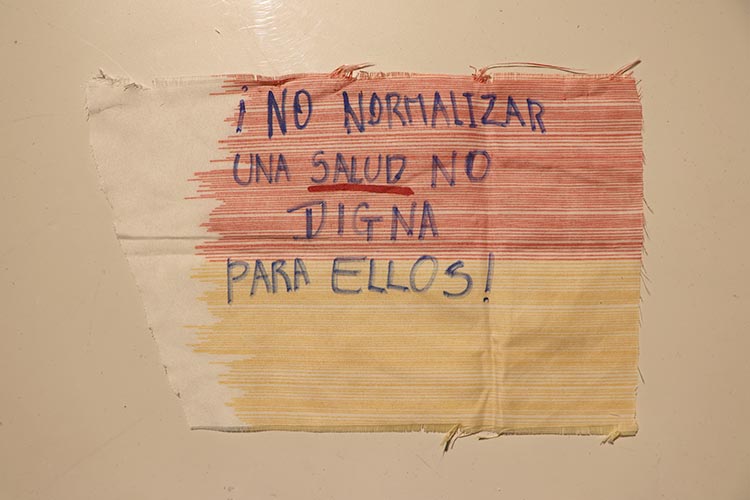 ¡NO NORMALIZAR
UNA SALUD NO
DIGNA
PARA ELLOS!